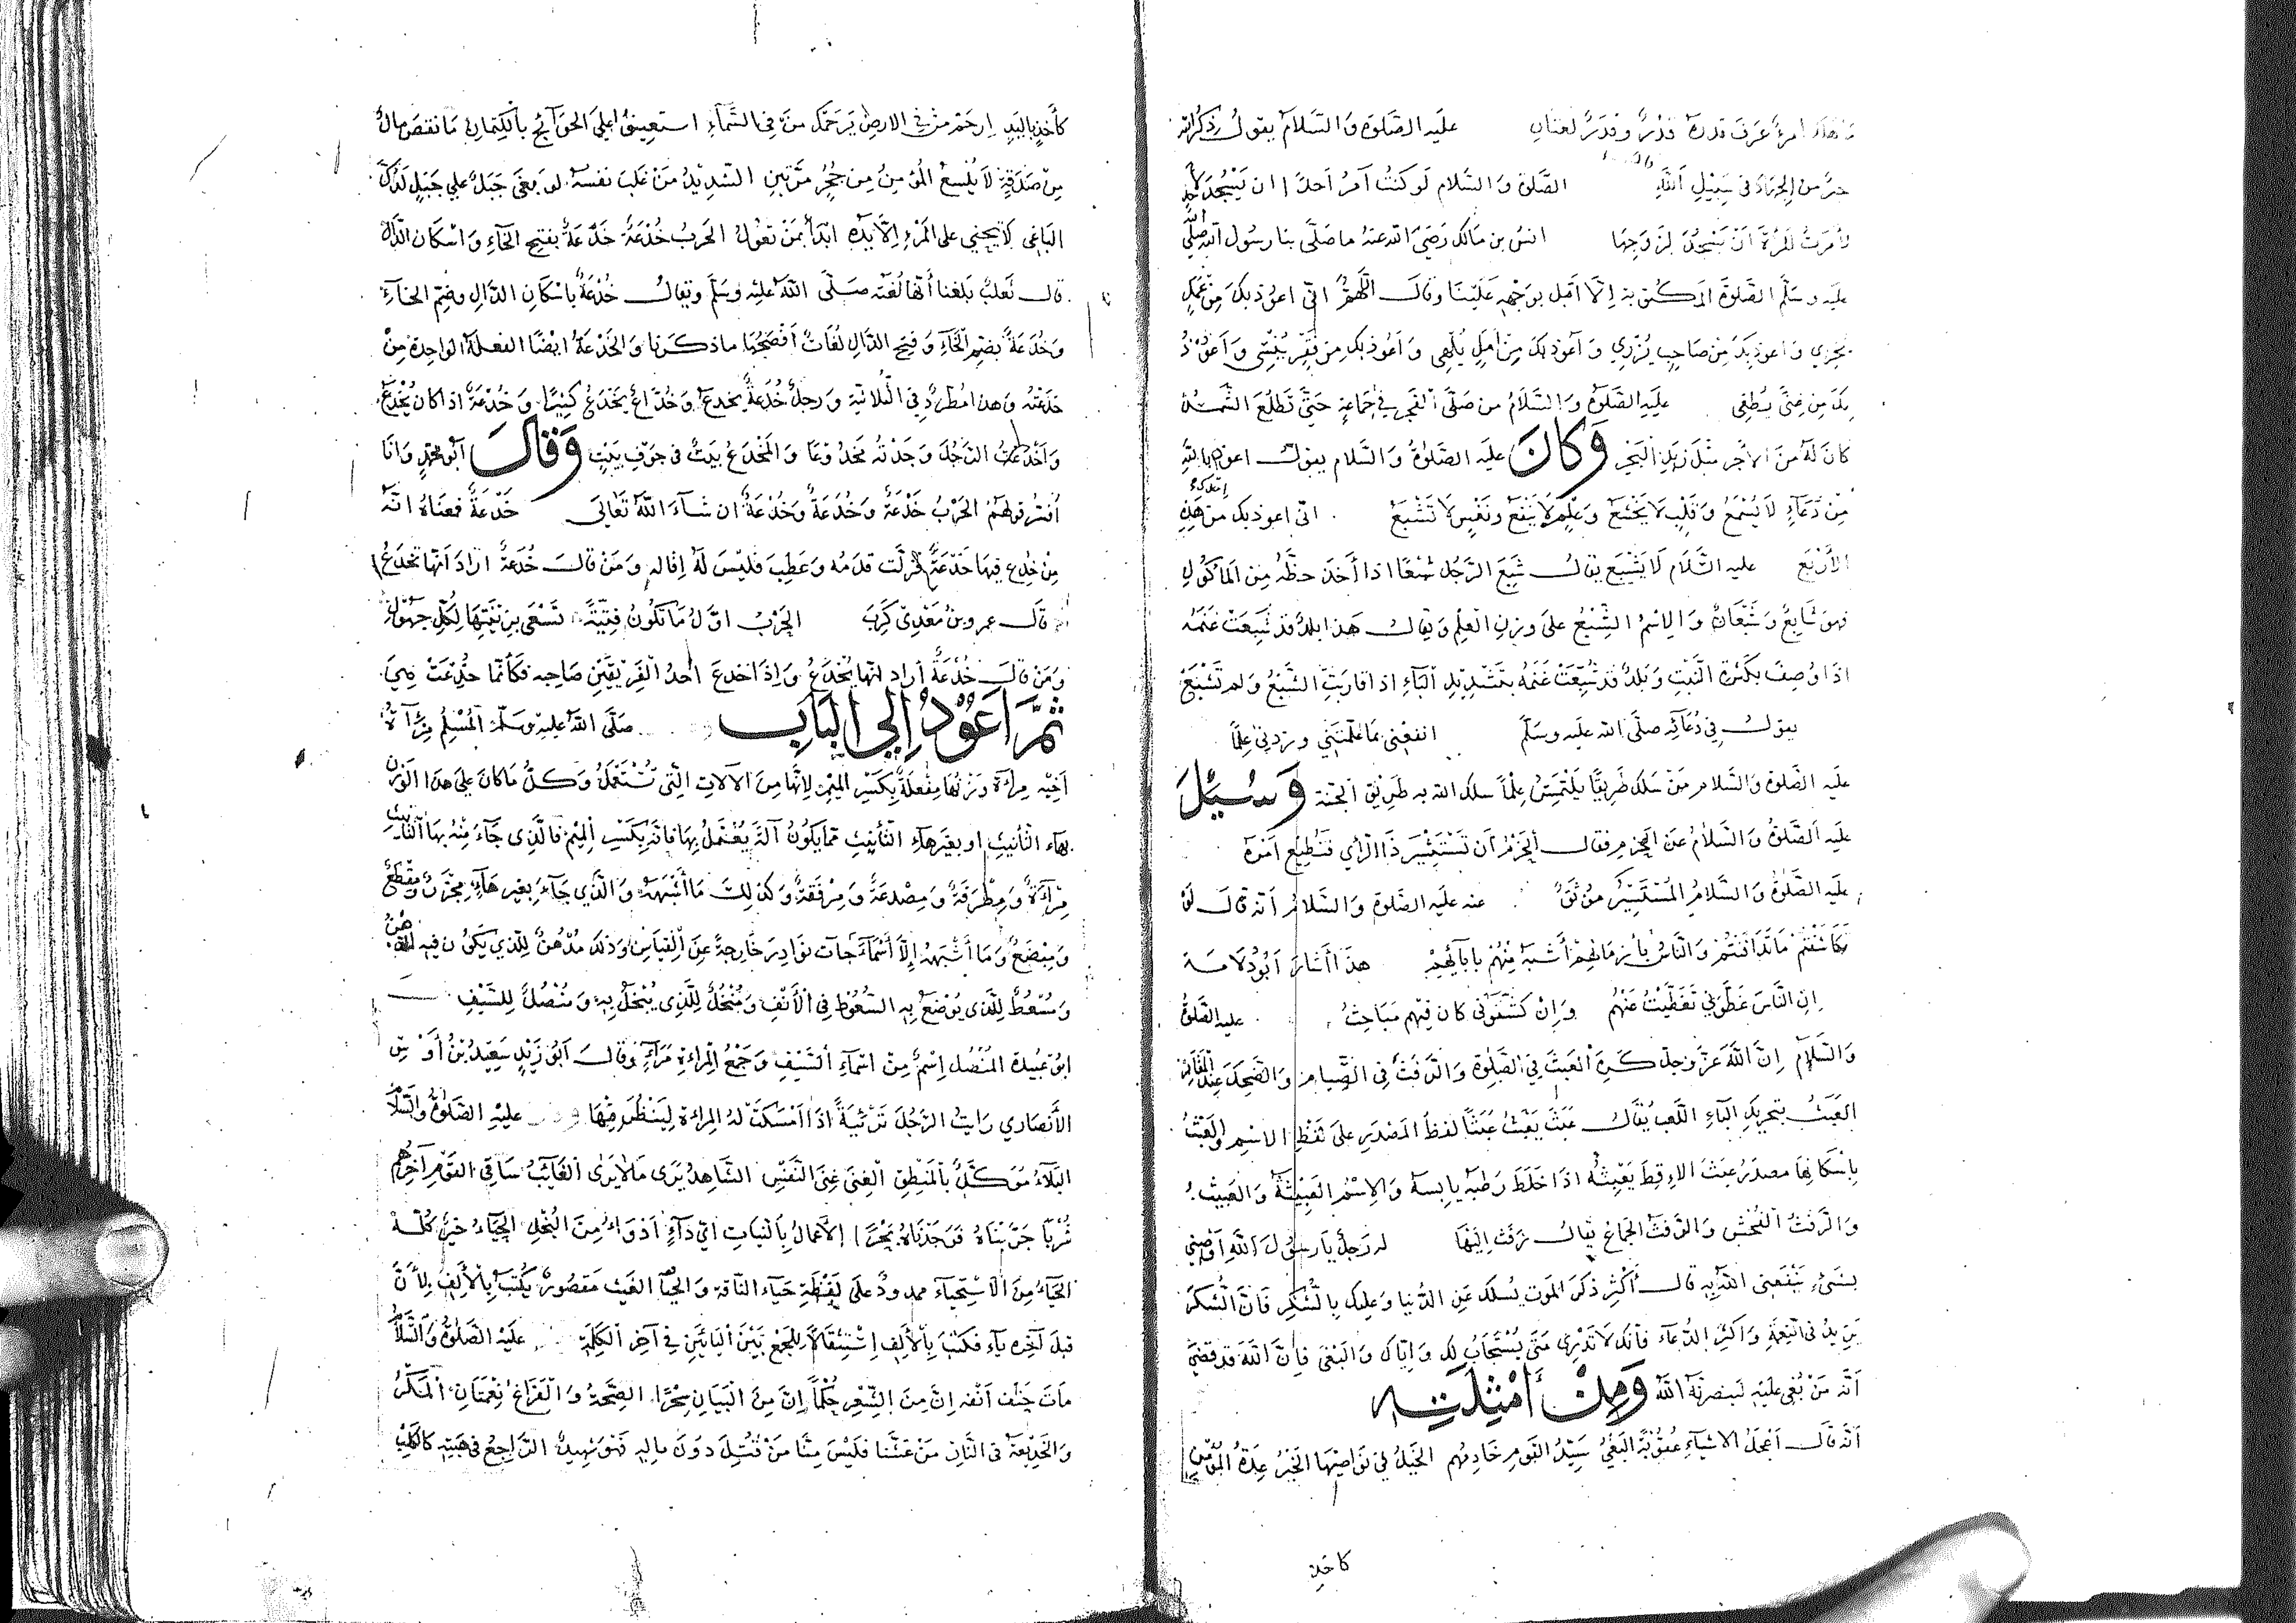 امرءًا عَرَفَ قدرهُ قَدْرٌ وقَدَرٌ لغتان عليه الصّلوة والسّلام يقول ذكر الله
خيرٌ من الجهاد في سبيل الله الصّلوة والسّلام لو كنتُ آمر أحدًا ان يسجد لأحدٍ
لأمرتُ المرأة أن تسجُدَ لزوجها انس بن مالك رضي الله عنه ما صلّى بنا رسول الله صلى الله
عليه وسلّم الصّلوة المكتوبة إلّا أقبل بوجهه علينا وقال اللّهمّ انّي اعوذ بك من عملٍ
يخزي واعوذ بك من صاحبٍ يُزري واعوذ بك من أملٍ يُلهي واعوذ بك من فقرٍ يُنسي واعوذُ
بك من غِنًى يُطغي عليه الصّلوة والسّلام من صلّى الفجر في جماعةٍ حتّى تطلُع الشّمسُ
كان لهُ من الأجر مثل زبد البحر وكان عليه الصّلوة والسّلام يقول اعوذ بالله
مِن دُعاءٍ لا يُسمعُ وقلبٍ لا يخشع وعلمٍ لا ينفع ونفسٍ لا تشبع انّي اعوذ بك من هذه
الأربع عليه السّلام لا يشبع يقال شبع الرّجل شِبَعًا اذا أخذ حظّه من المأكول
فهو شابعٌ وشبعان والإسمُ الشِّبْعُ على وزن العلم ويقال هذا بلدٌ قد شَبِعَتْ غنمه
اذا وصِفَ بكثرة النّبت وبلدٌ قد شُبِّعَتْ غنمه بتشديد الباء اذا قاربت الشّبعُ ولم تشبعْ
يقول في دُعائه صلّى الله عليه وسلّم انفعني بما علّمتني وزدني علمًا
عليه الصّلوة والسّلام من سلك طريقًا يلتمسُ علمًا سلك الله به طريق الجنّة وسُئِلَ
عليه الصّلوةُ والسّلامُ عن الحزم فقال الحزمُ أن تستشير ذا الرأي فتُطيع أمره
عليه الصّلوةُ والسّلامُ المستشيرُ عنه عليه الصّلوة والسّلامُ أنّه قال لو
تكاشفتم ما تدافنتم والنّاسُ بأزمانهم أشبهُ منهم بآبائهم هذا أشار أبو دُلامة
إن النّاسَ غطَّوْني تغطّيتُ عنهم وإن كشفوني كان فيهم مباحثُ عليه الصّلوةُ
والسّلام إنّ الله عزّ وجلّ كره العبث في الصّلوة والرفث في الصّيام والضّحك عند المقابر
العبثُ بتحريك الباء اللّعب يقال عبث يعبثُ عبثًا لفظ المصدر على لفظ الاسم والعبثُ
بإسكانها مصدر عبث الاقِط يَعبِثُه اذا خلط رطبه بيابسه والإسم العبيثةُ والعبيث
والرّفثُ الفُحش والرّفثُ الجماع يقال رفث إليها له رجلٌ يا رسول الله أوصني
بشيءٍ ينفعني الله به قال أكثر ذكر الموت يُسلك عن الدُّنيا وعليك بالشّكر فإنّ الشّكر
يزيدُ في النعمة واكثر الدُّعاء فإنّك لا تدري متى يُستجاب لك وإيّاك والبغي فإنّ الله قد قضى
انّه من بُغي عليه لينصرنّه الله ومن أمثلته
أنّه قال أعجلُ الأشياء عقوبةً البغيُ سيّدُ القوم خادمهم الخيلُ في نواصيها الخيرُ عِدَةُ المؤمن
كاخذٍ
كأخذٍ باليد إرحم من في الارض يرحمك من في السّماء استعينوا على الحوائج بالكتمان ما نقص مالٌ
من صدقةٍ لا يُلسع المؤمنُ من جُحرٍ مرّتين الشّديدُ من غلب نفسه لو بغى جبلٌ على جبلٍ لدُكّ
الباغي لا يجني على المرء الّا يده ابدأ بمن تعول الحربُ خُدعةٌ خَدْعةٌ بفتح الخاء واسكان الدّال
قال ثعلبٌ بلغنا أنّها لُغته صلّى الله عليه وسلّم ويقال خُدْعةٌ باسكان الدّال وضمّ الخاء
وخُدَعةٌ بضمّ الخاء وفتح الدّال لغاتٌ أفصحُها ما ذكرنا والخَدْعةُ ايضًا الفعلة الواحدة من
خدعتُه وهذا مُطّردٌ في الثّلاثة ورجلٌ خُدَعةٌ يخدع وخدّاعٌ يخدع كثيرًا وخُدْعةٌ اذا كان يُخدع
وأخدعتُ الرّجل وجدته مخدوعًا والمخدعُ بيتٌ في جوف بيتٍ وقال ابو محمّدٍ وأنا
أُفسّر قولهم الحربُ خَدْعةٌ وخُدَعةٌ وخُدْعةٌ ان شاء الله تعالى خَدْعةٌ فمعناهُ انّه
من خُدع فيها خَدْعةً فزلّت قدمه وعطِبَ فليس له إقالةٌ ومن قال خُدَعةٌ أراد أنّها تخدعُ
قال عمرو بن معدي كرب الحربُ اوّل ما تكون فتيّةً تسعى بزينتها لكلّ جهول
ومن قال خُدْعةٌ أراد أنّها تُخدعُ وإذا خدع أحدُ الفريقين صاحبه فكأنّما خُدِعت هي
ثمّ أعود إلى الباب صلّى الله عليه وسلّم المُسلم مرآةُ
أخيه مرآةٌ وزنُها مِفعلةٌ بكسر الميم لأنّها من الآلات الّتي تُستعمل وكلّ ما كان على هذا الوزن
بهاء التأنيث او بغير هاء التأنيث ممّا يكون آلةً يُعتمل بها فانّه بكسر الميم فالّذي جاء منه بهاء التأنيث
مرآةٌ ومِطرقةٌ ومِصدغةٌ ومِرفقةٌ وكذلك ما أشبهه والّذي جاء بغير هاءٍ مِخرزٌ ومِقطعٌ
ومِبضعٌ وما أشبهه إلّا أسماءً جاءت نوادر خارجةً عن القياس وذلك مُدهُنٌ للّذي يكون فيه الدّهن
ومُسعُطٌ للّذي يوضع به السّعوط في الأنف ومُنخُلٌ للّذي يُنخلُ به ومُنصُلٌ للسّيف
ابو عبيدة المُنصُل إسمٌ من اسماء السّيف وجمع المرآة مَرآءٍ وقال أبو زيدٍ سعيدُ بن أوسٍ
الأنصاري رأيت الرّجل ترئيةً اذا أمسكت له المرآة لينظر فيها عليه الصّلوةُ والسّلام
البلاءُ موكّلٌ بالمنطق الغنى غنى النّفس الشّاهد يرى ما لا يرى الغائب ساقي القوم آخرهم
شُربًا جرّبناهُ فوجدناهُ بحرًا الأعمال بالنيات ايّ داءٍ أدواءُ من البُخل الحياءُ خيرٌ كلّه
الحياءُ من الاستحياء ممدودٌ على لفظة حياء النّاقة والحيا الغيث مقصورٌ يُكتب بالألف لأنّ
قبل آخره ياء فكُتب بالألف استثقالًا للجمع بين اليائين في آخر الكلمة عليه الصّلوةُ والسّلام
مات حتف أنفه إنّ من الشّعر حُكمًا إنّ من البيان سحرًا الصّحّةُ والفراغُ نعمتان المكرُ
والخديعةُ في النّار من غشّنا فليس منّا من قُتل دون ماله فهو شهيدٌ الرّاجعُ في هبته كالكلب